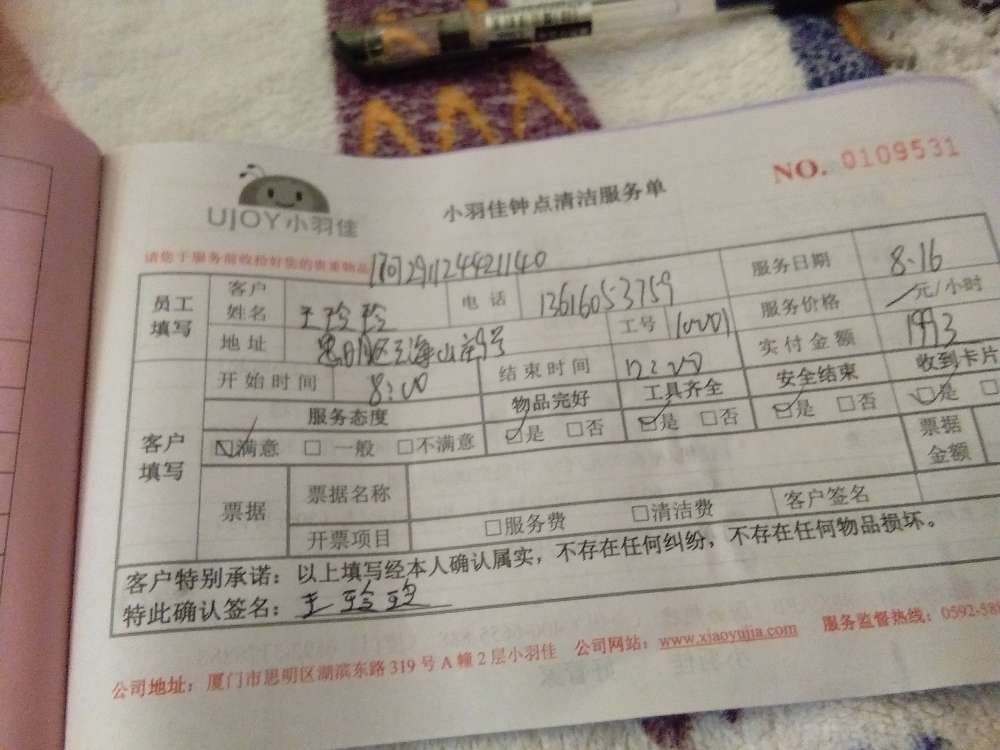 NO. 0109531
UJOY小羽佳
小羽佳钟点清洁服务单
请您于服务前收拾好您的贵重物品
员工填写 客户姓名 王玲玲 电话 13616053759 服务日期 8.16
地址 工号 服务价格 元/小时
开始时间 8:00 结束时间 12:00 实付金额 1993
客户填写 服务态度 物品完好 工具齐全 安全结束 收到卡片
☑满意 □一般 □不满意 ☑是 □否 ☑是 □否 ☑是 □否 ☑是 □
票据 票据名称 票据金额
开票项目 □服务费 □清洁费 客户签名
客户特别承诺：以上填写经本人确认属实，不存在任何纠纷，不存在任何物品损坏。
特此确认签名：王玲玲
公司地址：厦门市思明区湖滨东路319号A幢2层小羽佳 公司网站：www.xiaoyujia.com 服务监督热线：0592-588